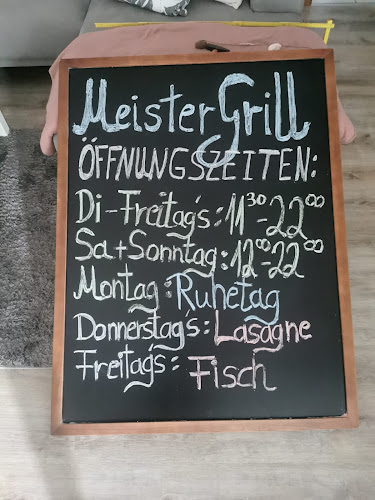 Meister Grill
ÖFFNUNGSZEITEN:
Di-Freitag's: 11³⁰-22⁰⁰
Sa+Sonntag: 12⁰⁰-22⁰⁰
Montag: Ruhetag
Donnerstag's: Lasagne
Freitag's: Fisch